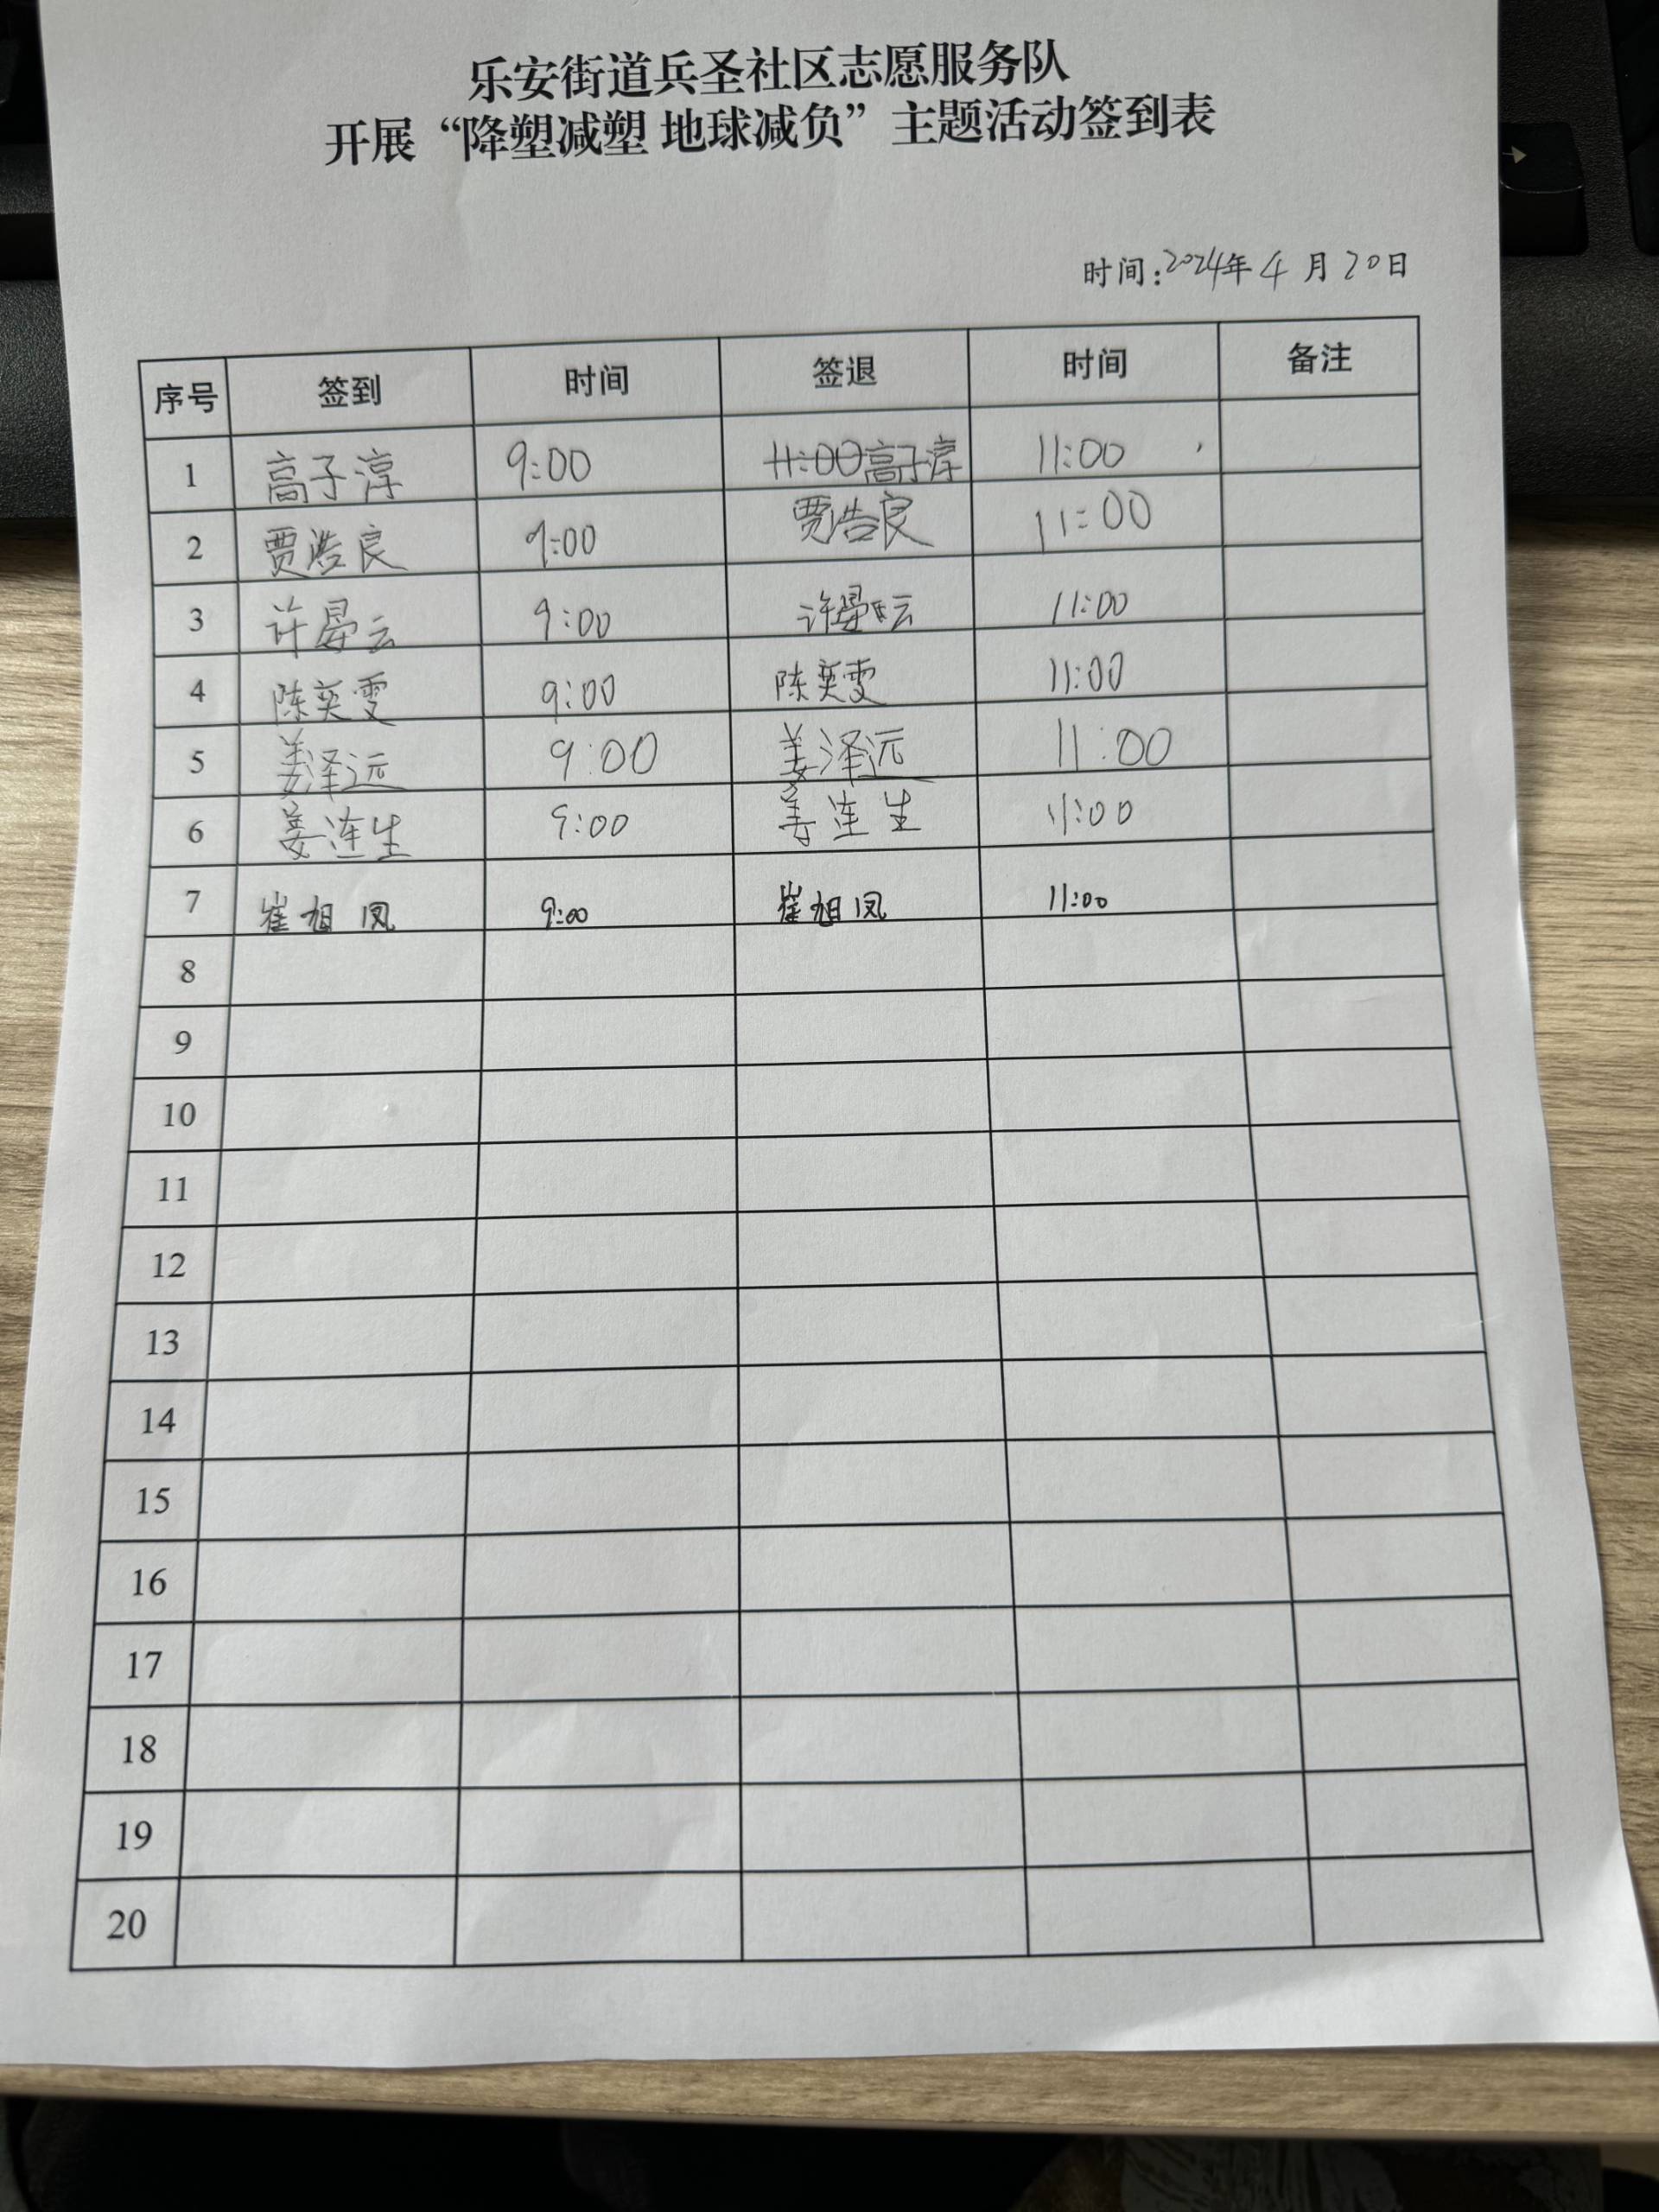 乐安街道兵圣社区志愿服务队
开展“降塑减塑 地球减负”主题活动签到表
时间:2024年4月20日
序号 签到 时间 签退 时间 备注
1 高子淳 9:00 11:00高子淳 11:00
2 贾浩良 9:00 贾浩良 11:00
3 许晏云 9:00 许晏云 11:00
4 陈奕雯 9:00 陈奕雯 11:00
5 姜泽远 9:00 姜泽远 11:00
6 姜连生 9:00 姜连生 11:00
7 崔旭凤 9:00 崔旭凤 11:00
8
9
10
11
12
13
14
15
16
17
18
19
20